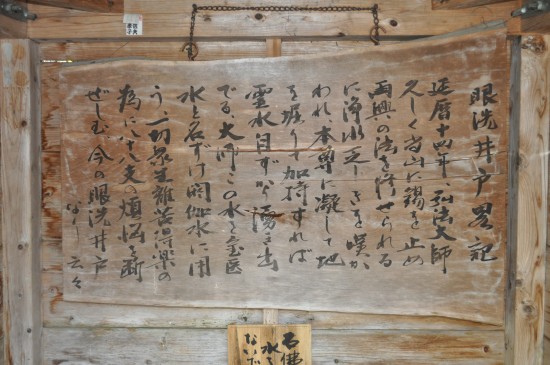 眼洗井戸畧記
延暦十四年、弘法大師
久しく当山に錫を止め
両興の法を修せられる
に浄水乏しきを嘆か
われ、本尊に凝して地
を堀りて加持すれば
霊水自ずから湧き出
でる、大師この水を宝医
水と名ずけ閼伽水に用
う、一切衆生離苦得楽の
為に八十八支の煩悩を断
ぜしむ今の眼洗井戸
なり 云々
石佛
水を
ないで